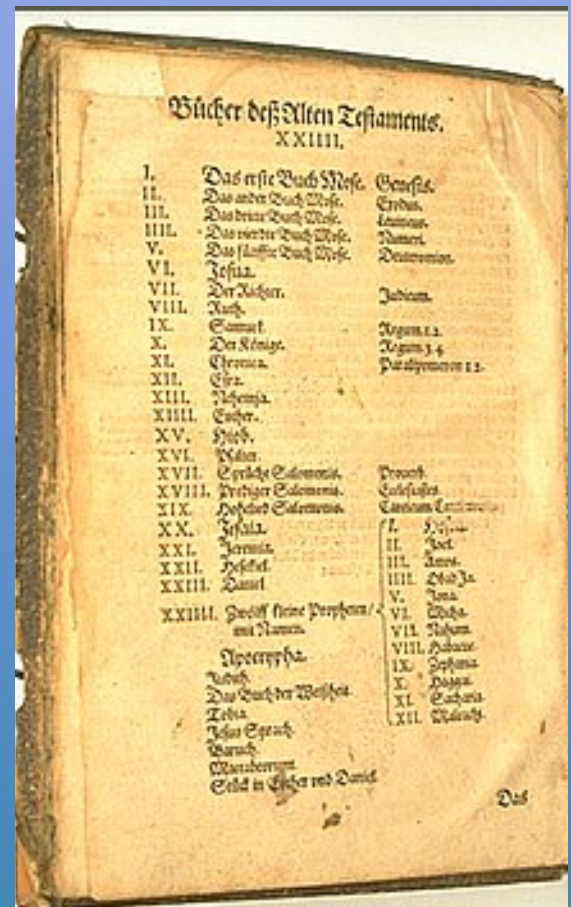 Bücher deß Alten Testaments.
XXIIII.
I. Das erste Buch Mose. Genesis.
II. Das ander Buch Mose. Exodus.
III. Das dritte Buch Mose. Leuiticus.
IIII. Das vierdte Buch Mose. Numeri.
V. Das fünffte Buch Mose.
VI. Josua.
VII. Der Richter. Judicum.
VIII. Ruth.
IX. Samuel. Regum 1.2.
X. Der Könige. Regum 3.4.
XI. Chronica. Paralipomenon 1.2.
XII. Esra.
XIII. Nehemja.
XIIII. Esther.
XV. Hiob.
XVI. Psalter.
XVII. Sprüche Salomonis. Prouerb.
XVIII. Prediger Salomonis. Ecclesiastes.
XIX. Hohelied Salomonis. Canticum
XX. Jesaia.
XXI. Jeremia.
XXII. Hesekiel.
XXIII. Daniel.
XXIIII. Zwölff kleine Propheten/
mit Namen.
I. Hosea.
II. Joel.
III. Amos.
IIII. ObadJa.
V. Jona.
VI. Micha.
VII. Nahum.
VIII. Habacuc.
IX. Zephania.
X. Haggai.
XI. Sacharia.
XII. Maleachi.
Apocrypha.
Judith.
Das Buch der Weißheit.
Tobia.
Jesus Syrach.
Baruch.
Maccabeorum.
Stück in Esther vnd Daniel.
Das